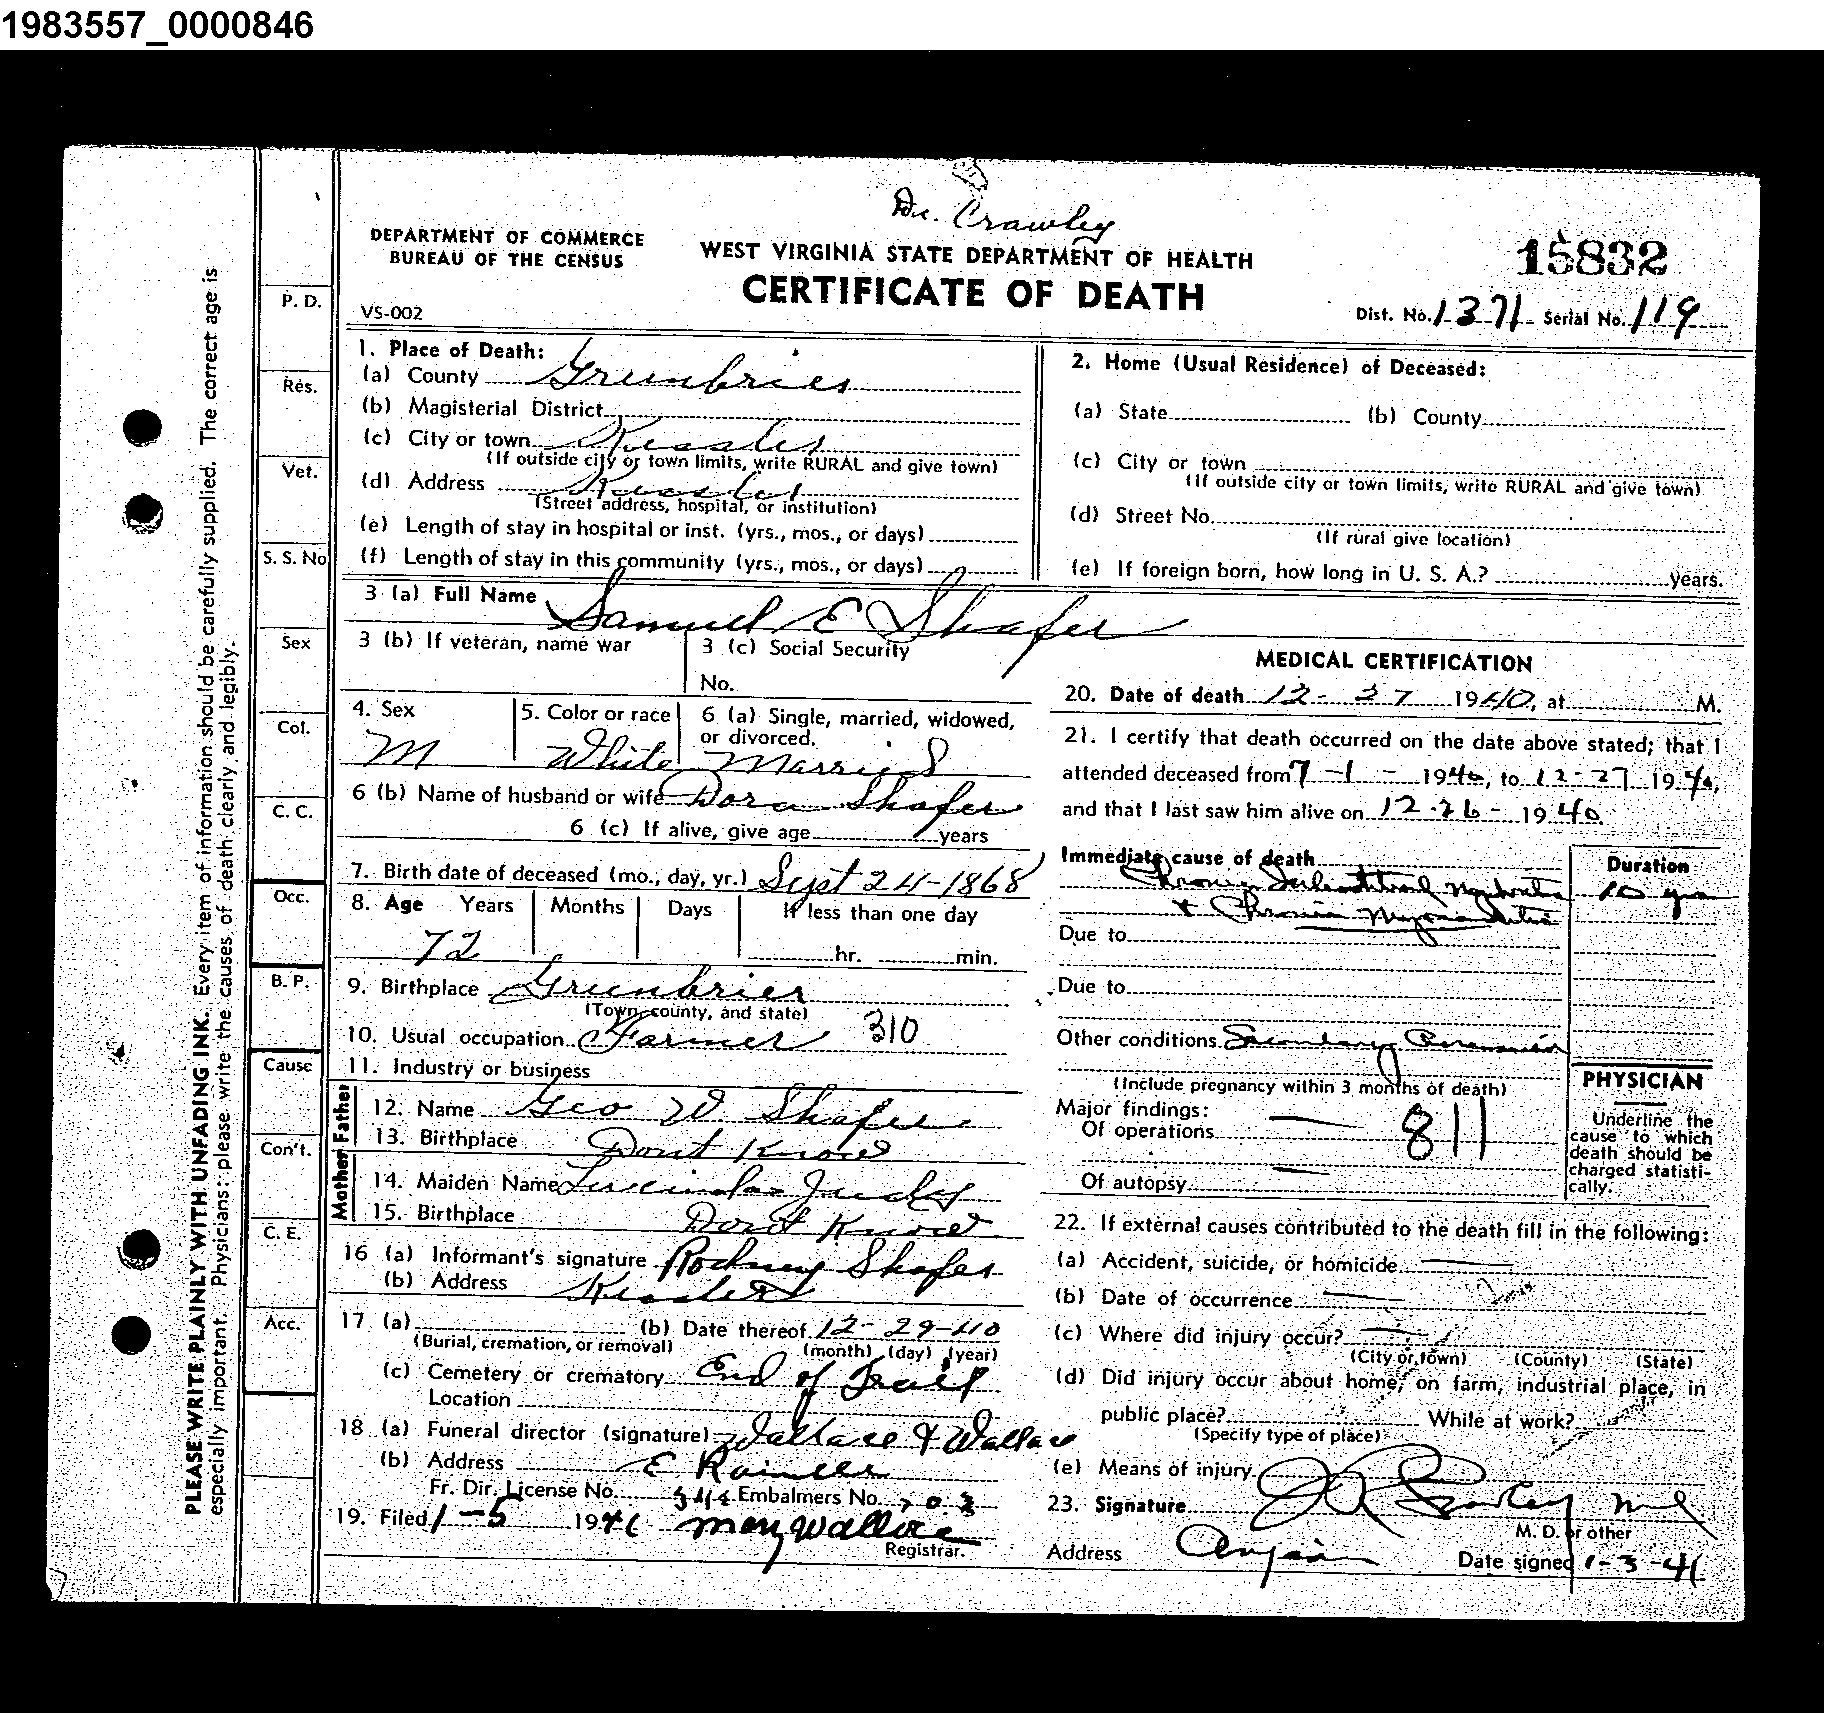 1983557_0000846
Dr. Crawley
DEPARTMENT OF COMMERCE
BUREAU OF THE CENSUS
WEST VIRGINIA STATE DEPARTMENT OF HEALTH
CERTIFICATE OF DEATH
15832
VS-002
Dist. No. 1371 Serial No. 119
PLEASE WRITE PLAINLY WITH UNFADING INK. Every item of information should be carefully supplied. The correct age is
especially important. Physicians: please write the causes of death clearly and legibly.
P. D.
Res.
Vet.
S. S. No
Sex
Col.
C. C.
Occ.
B. P.
Cause
Con't.
C. E.
Acc.
1. Place of Death:
(a) County Greenbrier
(b) Magisterial District
(c) City or town Kessler
(If outside city or town limits, write RURAL and give town)
(d) Address Kessler
(Street address, hospital, or institution)
(e) Length of stay in hospital or inst. (yrs., mos., or days)
(f) Length of stay in this community (yrs., mos., or days)
2. Home (Usual Residence) of Deceased:
(a) State (b) County
(c) City or town
(If outside city or town limits, write RURAL and give town)
(d) Street No.
(If rural give location)
(e) If foreign born, how long in U. S. A.? years.
3 (a) Full Name Samuel E Shafer
3 (b) If veteran, name war
3 (c) Social Security
No.
4. Sex
M
5. Color or race
White
6 (a) Single, married, widowed,
or divorced.
Married
6 (b) Name of husband or wife Dora Shafer
6 (c) If alive, give age years
7. Birth date of deceased (mo., day, yr.) Sept 24-1868
8. Age Years Months Days If less than one day
72 hr. min.
9. Birthplace Greenbrier
(Town, county, and state)
10. Usual occupation Farmer 310
11. Industry or business
Father
12. Name Geo W. Shafer
13. Birthplace Dont Know
Mother
14. Maiden Name Lucinda Judy
15. Birthplace Dont Know
16 (a) Informant's signature Rodney Shafer
(b) Address Kessler
17 (a) (b) Date thereof 12-29-40
(Burial, cremation, or removal) (month) (day) (year)
(c) Cemetery or crematory End of Trail
Location
18 (a) Funeral director (signature) Wallace & Wallace
(b) Address E Rainelle
Fr. Dir. License No. Embalmers No. 703
19. Filed 1-5 194 Mary Wallace
Registrar.
MEDICAL CERTIFICATION
20. Date of death 12-27 1940, at M.
21. I certify that death occurred on the date above stated; that I
attended deceased from 7-1- 1940, to 12-27 1940,
and that I last saw him alive on 12-26- 1940
Immediate cause of death
Duration
Chronic Nephritis 10 yrs
& Chronic Myocarditis
Due to
Due to
Other conditions Secondary
(Include pregnancy within 3 months of death)
Major findings:
Of operations — 811
Of autopsy —
PHYSICIAN
Underline the
cause to which
death should be
charged statisti-
cally.
22. If external causes contributed to the death fill in the following:
(a) Accident, suicide, or homicide —
(b) Date of occurrence —
(c) Where did injury occur? —
(City or town) (County) (State)
(d) Did injury occur about home, on farm, industrial place, in
public place? While at work?
(Specify type of place)
(e) Means of injury
23. Signature Crawley MD
M. D. or other
Address
Date signed 1-3-41